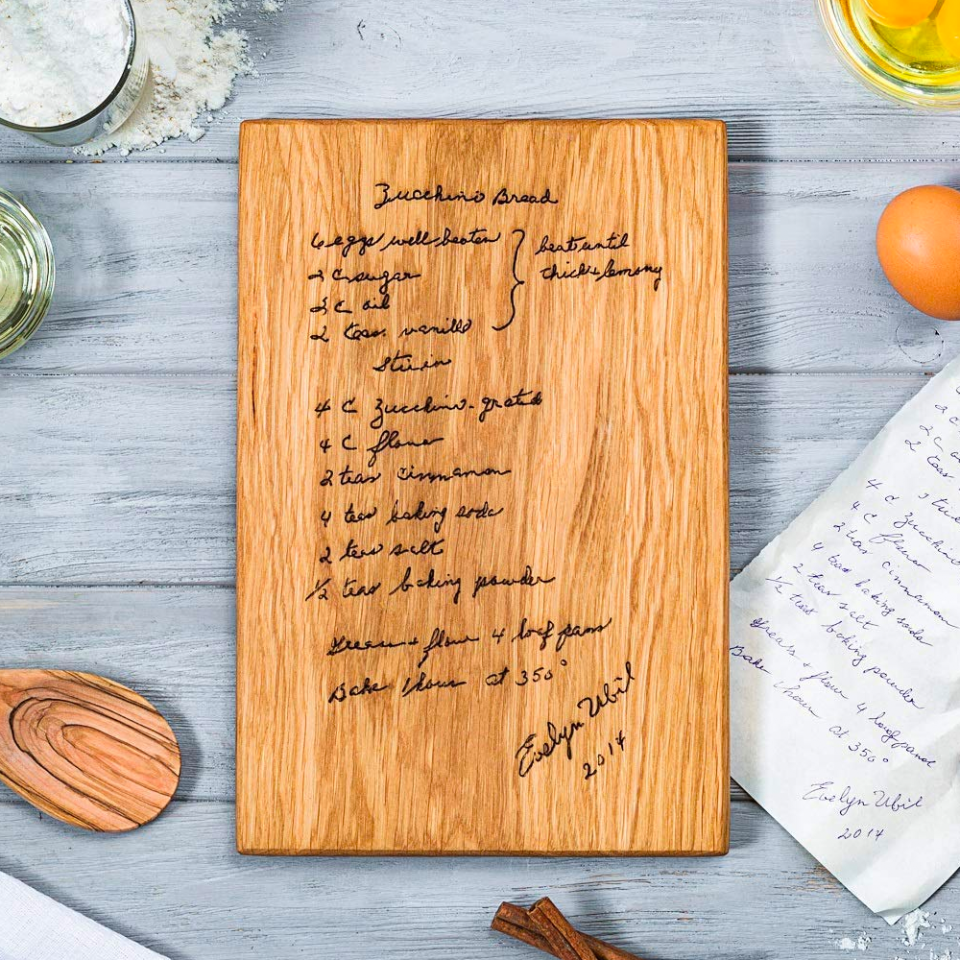 Zucchini Bread
6 eggs well beaten } beat until
2 C sugar thick + lemony
2 C oil
2 teas. vanilla
Stir in
4 C Zucchini - grated
4 C flour
2 teas cinnamon
4 teas baking soda
2 teas salt
1/2 teas baking powder
Grease + flour 4 loaf pans
Bake 1 hour at 350°
Evelyn Ubil
2014
2 C
2 C
2 teas
4 C Zucchini
4 C flour
2 teas cinnamon
4 teas baking soda
2 teas salt
1/2 teas baking powder
Grease + flour 4 loaf pans
Bake 1 hour at 350°
Evelyn Ubil
2014